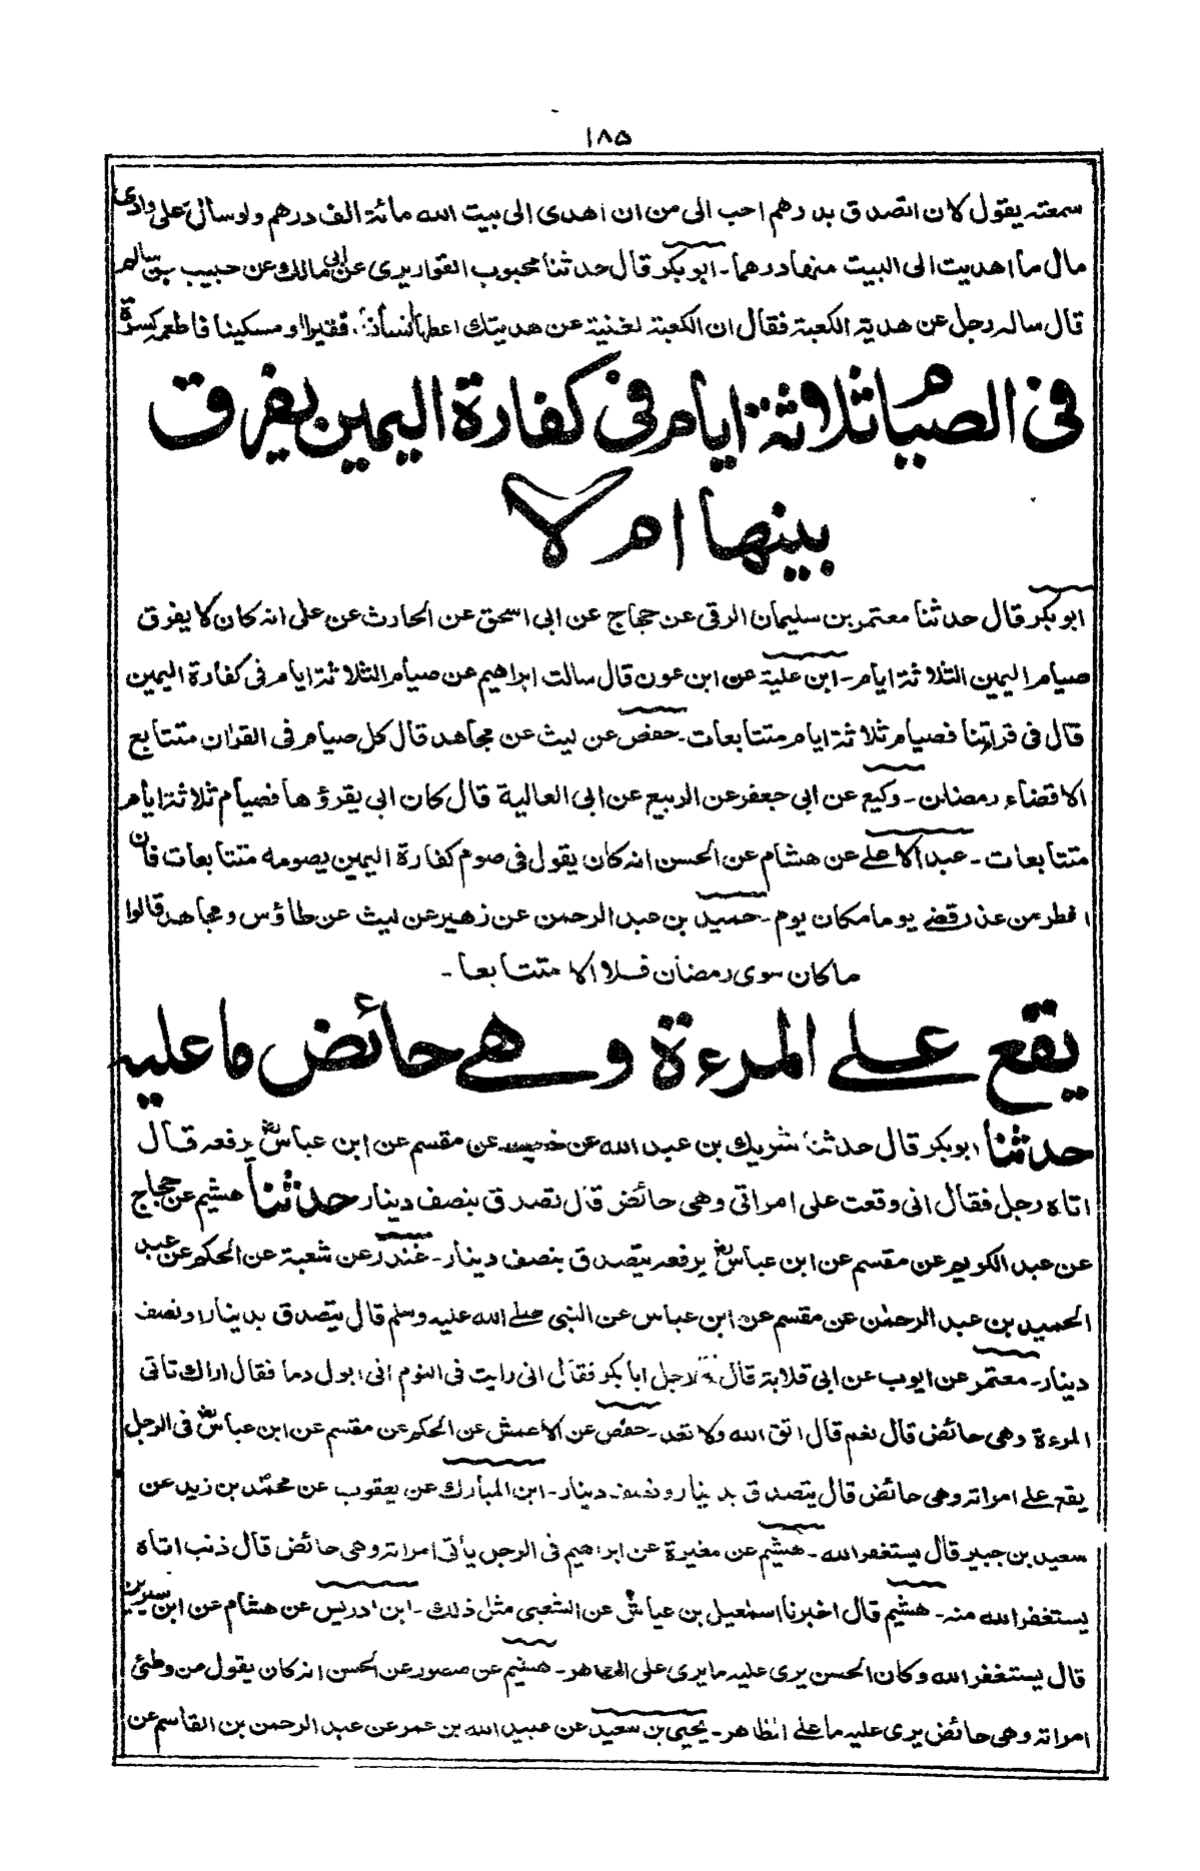 ۱۸۵
سمعته يقول لان اتصدق بدرهم احب الى من ان اهدى الى بيت الله مائة الف درهم ولو سال على وادى
مال ما اهديت الى البيت منها درهما ـ ابو بكر قال حدثنا محبوب القواريرى عن ابى مالك عن حبيب بن سالم
قال ساله رجل عن هدية الكعبة فقال ان الكعبة لغنية عن هديتك اعط فقيرا او مسكينا فاطعمه كسرة
فى الصيام ثلاثة ايام فى كفارة اليمين يفرق
بينها ام لا
ابو بكر قال حدثنا معتمر بن سليمان الرقى عن حجاج عن ابى اسحق عن الحارث عن على انه كان لا يفرق
صيام اليمين الثلاثة ايام ـ ابن علية عن ابن عون قال سالت ابراهيم عن صيام الثلاثة ايام فى كفارة اليمين
قال فى قراءتنا فصيام ثلاثة ايام متتابعات ـ حفص عن ليث عن مجاهد قال كل صيام فى القران متتابع
الا قضاء رمضان ـ وكيع عن ابى جعفر عن الربيع عن ابى العالية قال كان ابى يقرؤها فصيام ثلاثة ايام
متتابعات ـ عبد الاعلى عن هشام عن الحسن انه كان يقول فى صوم كفارة اليمين يصومه متتابعات فان
افطر من عذر قضى يوما مكان يوم ـ حميد بن عبد الرحمن عن زهير عن ليث عن طاؤس ومجاهد قالوا
ما كان سوى رمضان فلا الا متتابعا ـ
يقع على المرءة وهى حائض ما عليه
حدثنا ابو بكر قال حدثنا شريك بن عبد الله عن خصيف عن مقسم عن ابن عباس رض يرفعه قال
اتاه رجل فقال انى وقعت على امراتى وهى حائض قال تصدق بنصف دينار حدثنا هشيم عن حجاج
عن عبد الكريم عن مقسم عن ابن عباس رض يرفعه يتصدق بنصف دينار ـ غندر عن شعبة عن الحكم عن عبد
الحميد بن عبد الرحمن عن مقسم عن ابن عباس عن النبى صلى الله عليه وسلم قال يتصدق بدينار او نصف
دينار ـ معتمر عن ايوب عن ابى قلابة قال رجل ابا بكر فقال انى رايت فى النوم انى ابول دما فقال اراك تاتى
المرءة وهى حائض قال نعم قال اتق الله ولا تعد ـ حفص عن الاعمش عن الحكم عن مقسم عن ابن عباس رض فى الرجل
يقع على امراته وهى حائض قال يتصدق بدينار ونصف دينار ـ ابن المبارك عن يعقوب عن محمد بن زيد عن
سعيد بن جبير قال يستغفر الله ـ هشيم عن مغيرة عن ابراهيم فى الرجل يأتى امراته وهى حائض قال ذنب اتاه
يستغفر الله منه ـ هشيم قال اخبرنا اسمعيل بن عياش عن الشعبى مثل ذلك ـ ابن ادريس عن هشام عن ابن سيرين
قال يستغفر الله وكان الحسن يرى عليه ما يرى على المظاهر ـ هشيم عن منصور عن الحسن انه كان يقول من وطئ
امراته وهى حائض يرى عليه ما على المظاهر ـ يحيى بن سعيد عن عبيد الله بن عمر عن عبد الرحمن بن القاسم عن